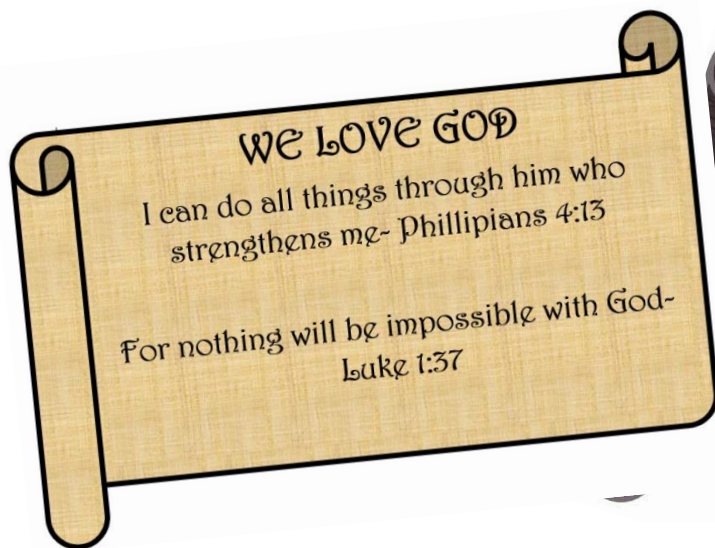 WE LOVE GOD
I can do all things through him who
strengthens me- Phillipians 4:13
For nothing will be impossible with God-
Luke 1:37